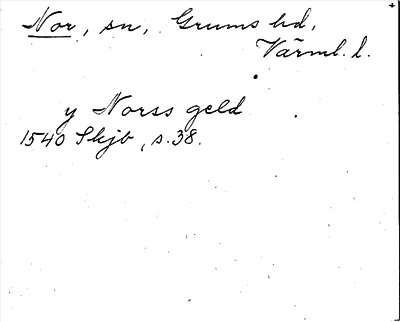 Nor, sn, Grums hd,
Värml. l.
y Norss geld
1540 Skjb, s. 38.